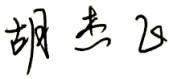 胡杰飞